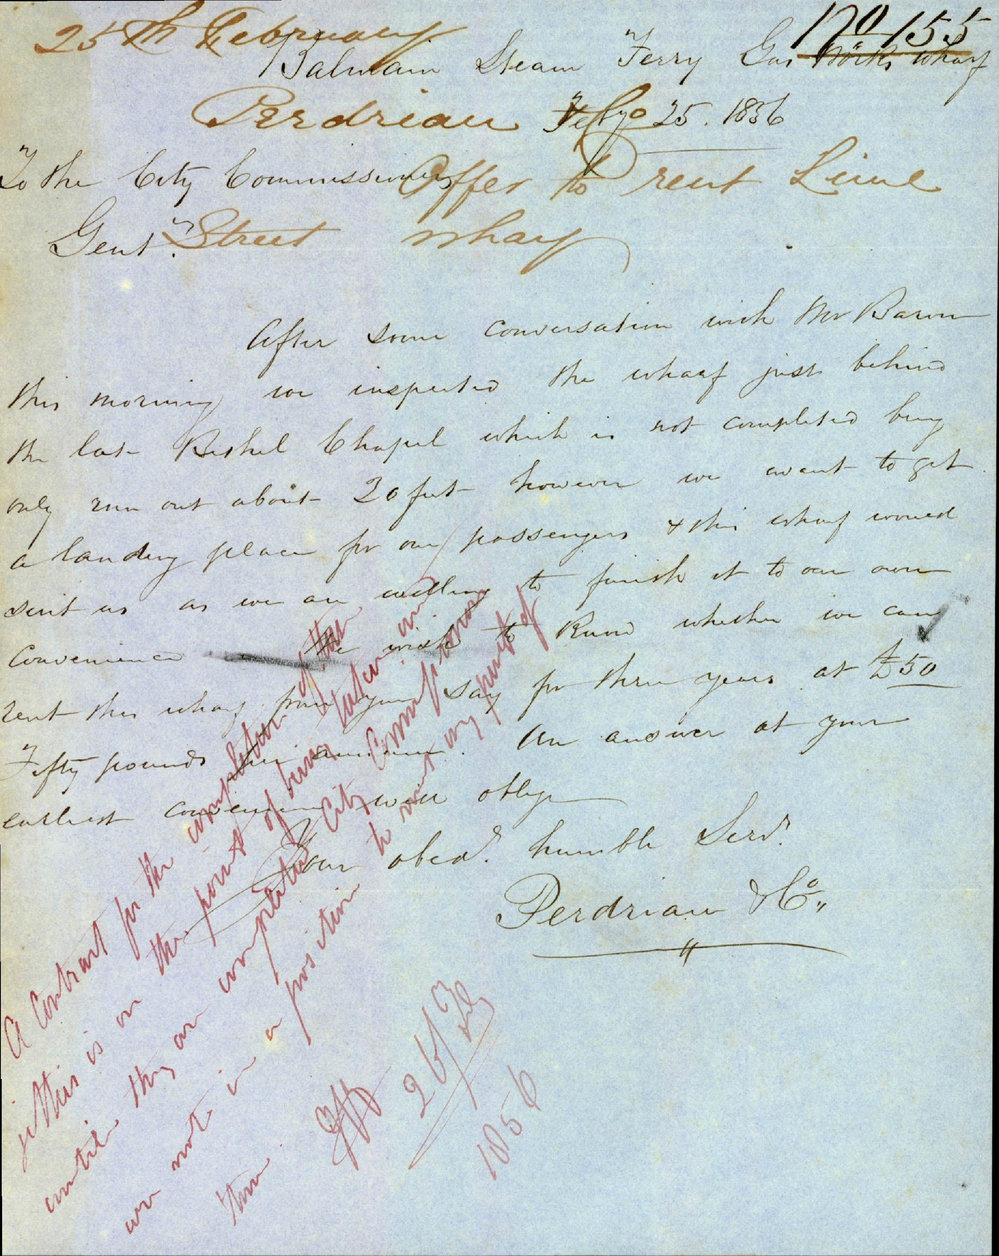 25th February
170/155
Balmain Steam Ferry Gas Works Wharf
Perdriau
Feby 25. 1856
To the City Commissioners
Offer to rent Lime
Street wharf
Gent.
After some conversation with Mr Baron
this morning we inspected the wharf just behind
the late Bethel Chapel which is not completed being
only run out about 20 feet however we want to get
a landing place for our passengers & this wharf would
suit us as we are willing to finish it to our own
convenience We wish to know whether we can
rent this wharf from you say for three years at £50
Fifty pounds per annum. An answer at your
earliest convenience will oblige
Your obedt. humble Servt.
Perdriau & Co
A contract for the completion of the
this is on the point of being taken and
until they are completed City Commissioners
are not in a position to rent any part of
them
26/Feb
1856